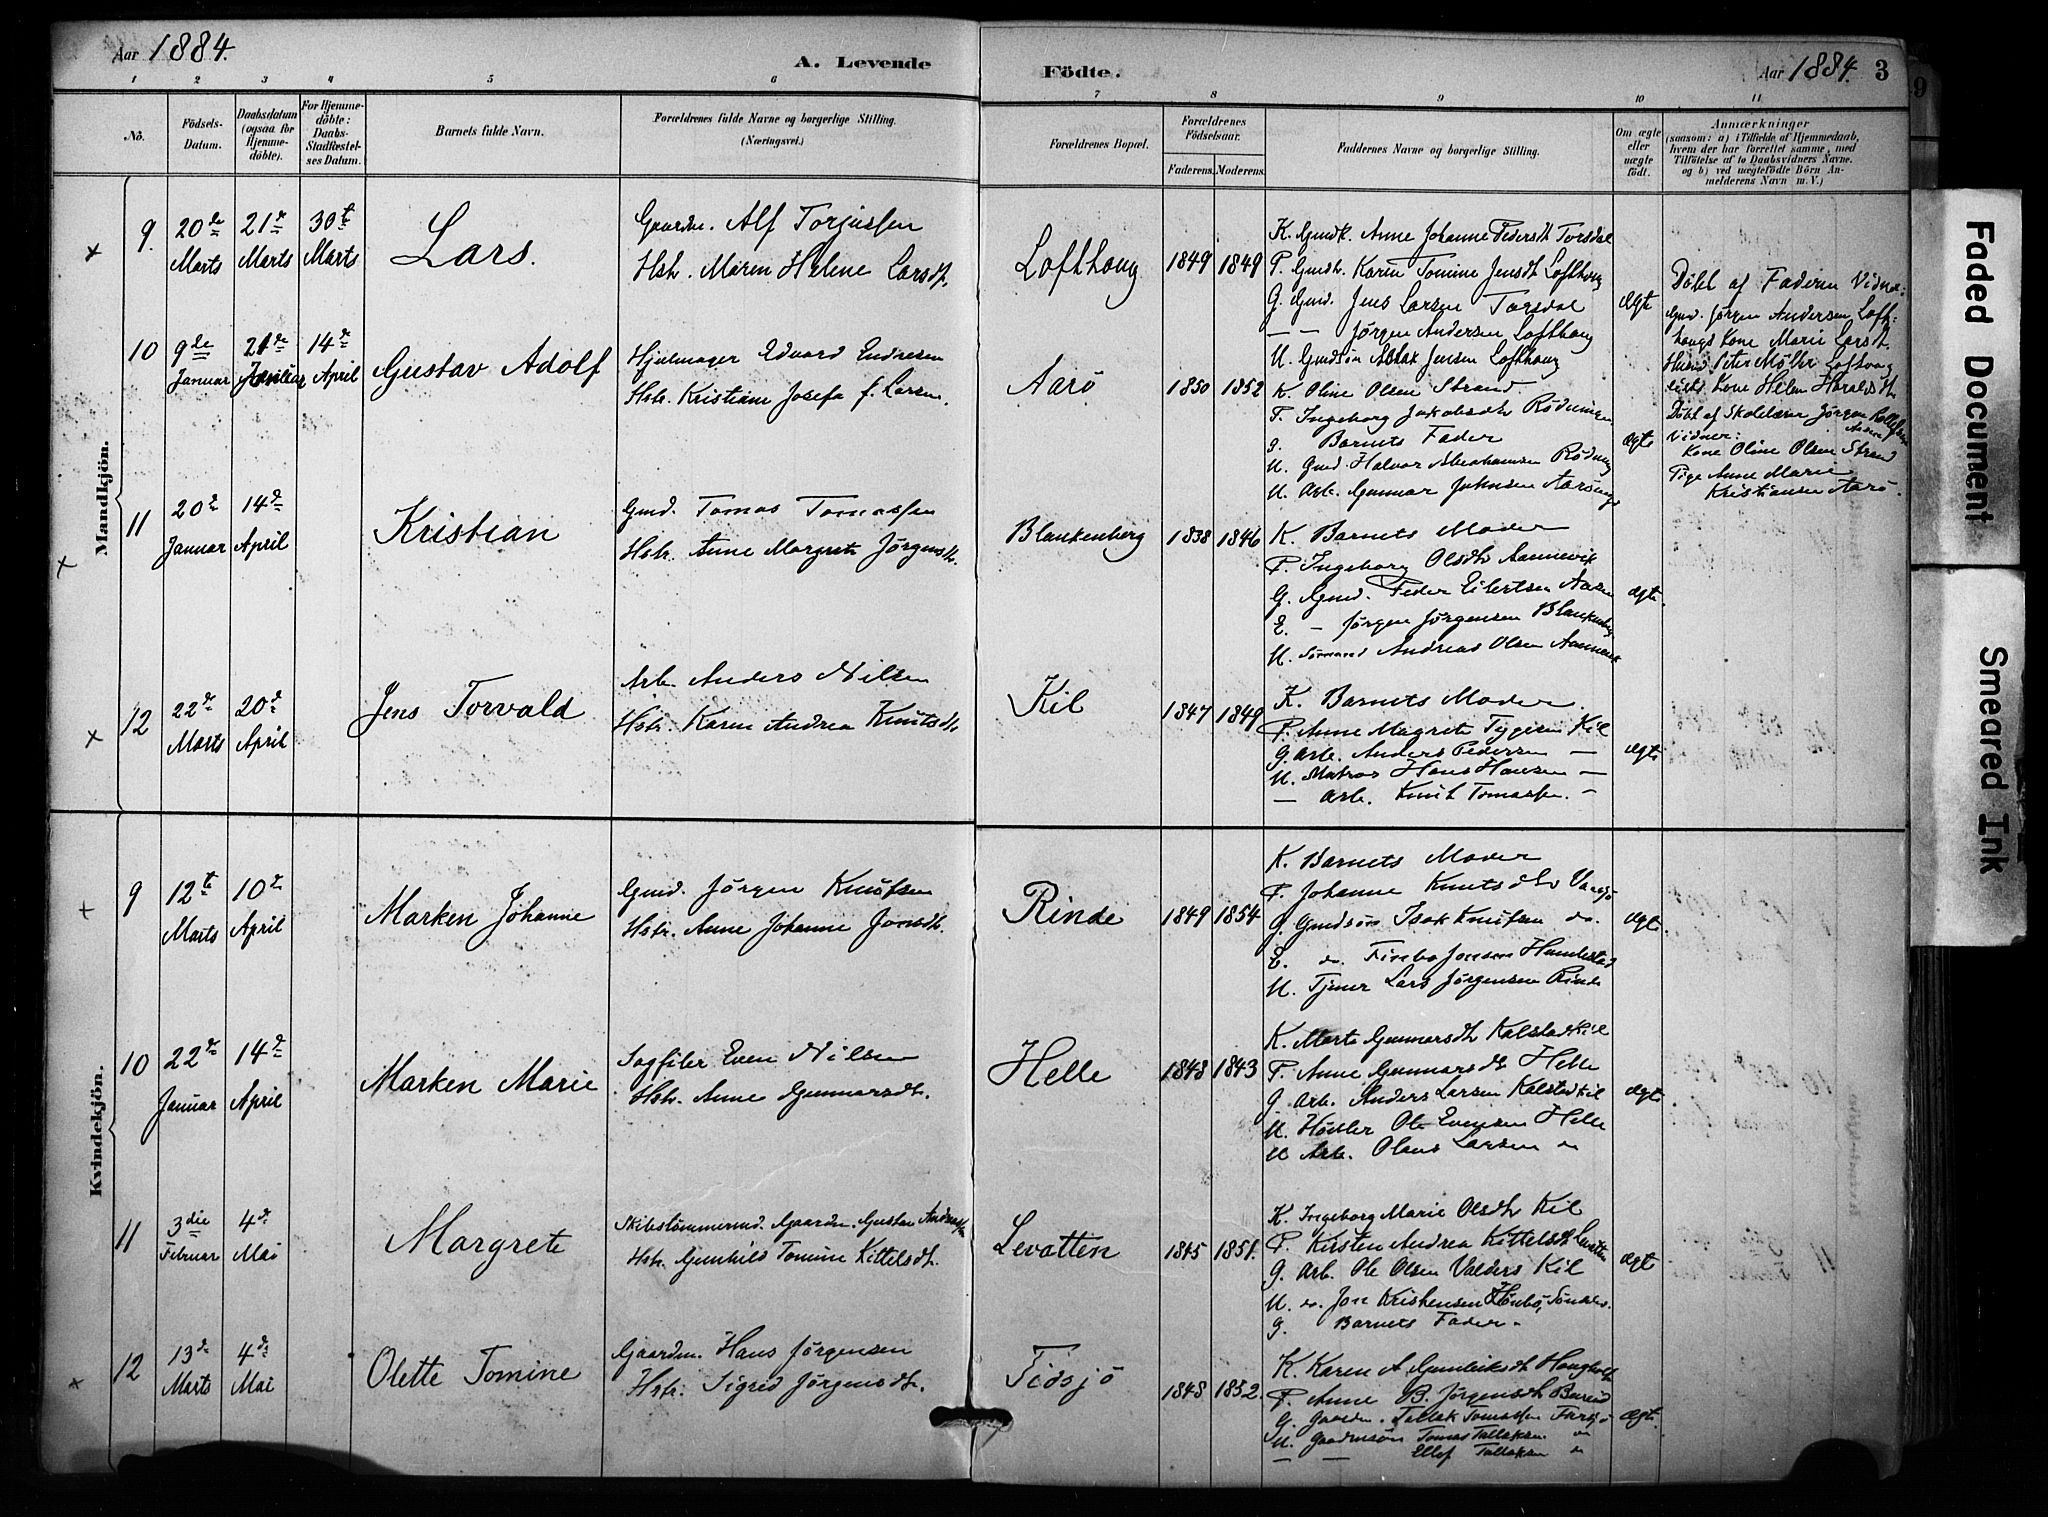 Aar 1884.
A. Levende
Födte.
Aar 1884. 3
1 2 3 4 5 6 7 8 9 10 11
Nö.
Födsels-Datum.
Daabsdatum (ogsaa for Hjemmedöbte).
For Hjemmedöbte: Daabs-Stadfæstelses Datum.
Barnets fulde Navn.
Forældrenes fulde Navne og borgerlige Stilling. (Næringsvei.)
Forældrenes Bopæl.
Forældrenes Födselsaar.
Faderens. Moderens.
Faddernes Navne og borgerlige Stilling.
Om ægte eller uægte födt.
Anmærkninger
(saasom: a) i Tilfælde af Hjemmedaab,
hvem der har forrettet samme, med
Tilföielse af to Daabsvidners Navne.
og b) ved uægtefödte Börn Anmelderens Navn m. V.)
Mandkjön.
9. 20de Marts 21de Marts 30te Marts
Lars.
Gaardm. Alf Torjussen
Hstr. Maren Helene Larsdt.
Lofthaug 1849 1849
K. Gmdk. Anne Johanne Pedersdt Torsdal
P. Gmdk. Karen Tomine Jensdt Lofthaug
G. Gmd. Jens Larsen Torsdal
— — Jörgen Andersen Lofthaug
U. Gmdsön Aslak Jensen Lofthaug
ægte
Döbt af Faderen Vidner:
Gmd. Jörgen Andersen Lofthaugs Kone Marie Larsdt.
Husmd Peter Möller Lofthaug
Kone Helene Haralsdt.
10 9de Januar 21de Januar 14de April
Gustav Adolf
Hjulmager Edvard Endresen
Hstr. Kristiane Josefa f. Larsen.
Aarö 1850 1852
K. Oline Olsen Strand.
P. Ingeborg Jakobsdtr Rödningen
G. Barnets Fader
U. Gmd. Halvor Abrahamsen Rödning
U. Arb. Gunnar Johnsen
ægte
Döbt af Skolelærer Jörgen
Vidner:
Kone Oline Olsen Strand
Pige Anne Marie
Kristiansen Aarö.
11 20de Januar 14de April
Kristian
Gmd. Tomas Tomassen
Hstr. Anne Margrete Jörgensdt.
Blankenberg 1838 1846
K. Barnets Moder
P. Ingeborg Olsdtr Aannevik
G. Gmd. Peder Eilertsen Aasen
E. — Jörgen Jörgensen Blankenberg
U. Sömand Andreas Olsen Aannevik
ægte.
12 22de Marts 20de April
Jens Torvald
Arb. Anders Nilsen
Hstr. Karen Andrea Knutsdt.
Kil 1847 1849
K. Barnets Moder.
P. Anne Magrete Tygesen Kil
G. Arb. Anders Pedersen —
U. Matros Hans Hansen —
— Arb. Knut Tomassen. —
ægte
Kvindekjön.
9 12te Marts 10de April
Marken Johanne
Gmd. Jörgen Knutsen
Hstr. Anne Johanne Jonsdt.
Rinde 1849 1854
K. Barnets Moder
P. Johanne Knutsdtr
G. Gmdsön Isak Knutsen do.
E. do. Finbo Jonsen Humlestad
U. Tjener Lars Jörgensen Rinde
ægte.
10 22de Januar 14de April
Marken Marie
Sagfiler Even Nilsen
Hstr. Anne Gunnarsdt.
Helle 1848 1843
K. Marte Gunnarsdt Kalstadkil
P. Anne Gunnarsdt Helle
G. Arb. Anders Larsen Kalstadkil
U. Hövler Ole Evensen Helle
U Arb. Olaus Larsen do
ægte.
11 3die Februar 4de Mai
Margrete
Skibstömmermd. Gaardm. Gustav
Hstr. Gunhild Tomine Kittelsdt.
Levatten 1845 1851.
K. Ingeborg Marie Olsdtr Kil
P. Kirsten Andrea Kittelsdt Levatten
G. Arb. Ole Olsen Valders Kil
U. do. Jon Kristensen
G. Barnets Fader.
ægte
12 13de Marts 4de Mai
Olette Tomine
Gaardm. Hans Jörgensen
Hstr. Sigred Jörgensdt.
Tidsjö 1848 1852.
K. Karen A. Gunleiksdt
P. Anne B. Jörgensdt
G. Gaardm. Tallak Tomassen
U. Gaardmsön Tomas Tallaksen do
— — Ellef Tallaksen do
ægte.
Faded Document
Smeared Ink
9